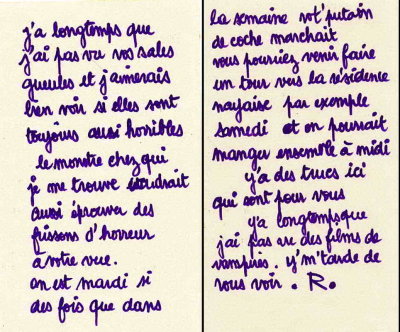 j'a longtemps que
j'ai pas vu vos sales
gueules et j'aimerais
bien voir si elles sont
toujours aussi horribles
le monstre chez qui
je me trouve voudrait
aussi éprouver des
frissons d'horreur
a votre vue.
on est mardi si
des fois que dans
la semaine vot' putain
de coche marchait
vous pourriez venir faire
un tour vers la résidence
nayaise par exemple
samedi et on pourrait
manger ensemble à midi
y'a des trucs ici
qui sont pour vous
y'a longtemps que
j'ai pas vu des films de
vampires. y'm'tarde de
vous voir. R.